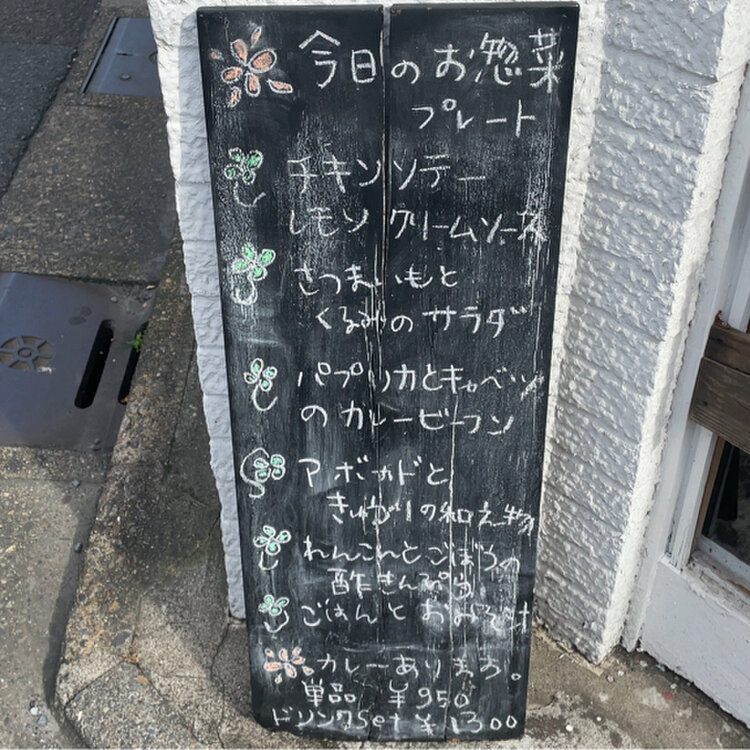 今日のお惣菜
プレート
チキンソテー
レモンクリームソース
さつまいもと
くるみのサラダ
パプリカとキャベツ
のカレービーフン
アボカドと
きゅうりの和え物
れんこんとごぼうの
酢きんぴら
ごはんとおみそ汁
カレーあります。
単品 ¥950
ドリンクset ¥1300